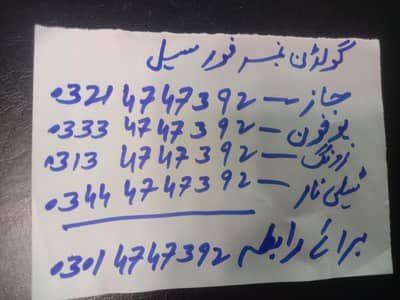 گولڈن نمبر فور سیل
جاز — 0321 4747392
یوفون — 0333 4747392
زونگ — 0313 4747392
ٹیلی نار — 0344 4747392
برائے رابطہ 0301 4747392